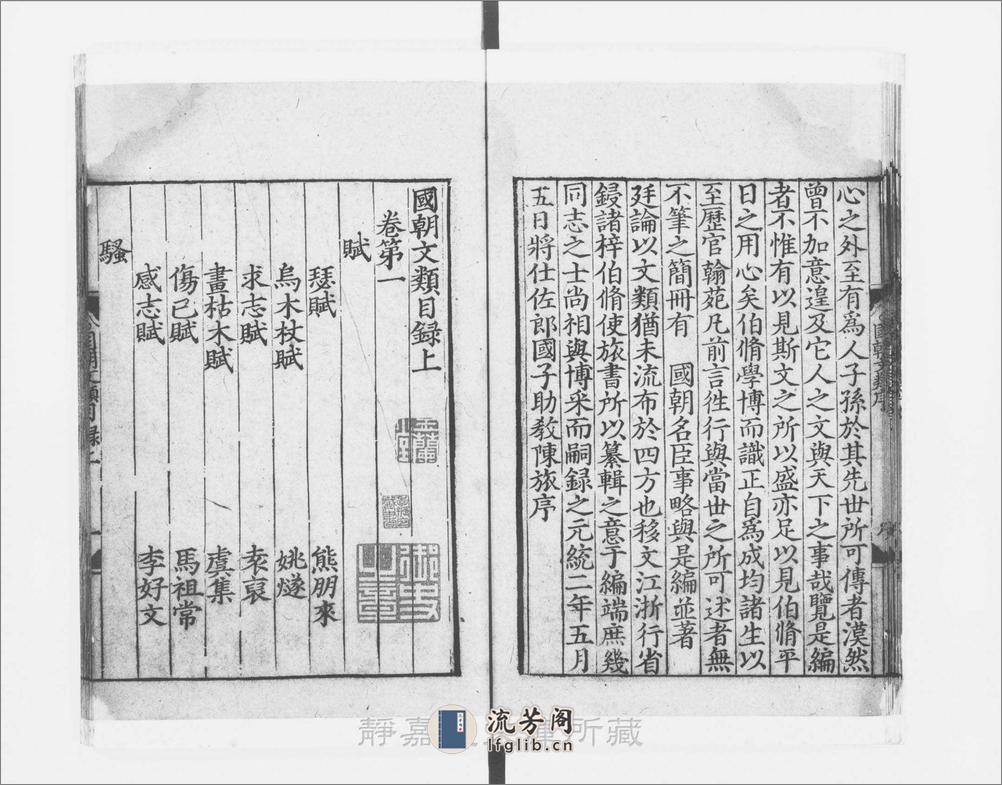 心之外至有為人子孫於其先世所可傳者漠然
曾不加意遑及它人之文與天下之事哉覽是編
者不惟有以見斯文之所以盛亦足以見伯脩平
日之用心矣伯脩學博而識正自為成均諸生以
至歷官翰苑凡前言徃行與當世之所可述者無
不筆之簡冊有　國朝名臣事略與是編並著
廷論以文類猶未流布於四方也移文江浙行省
鋟諸梓伯脩使旅書所以纂輯之意于編端庶幾
同志之士尚相與博采而嗣録之元統二年五月
五日將仕佐郎國子助教陳旅序
國朝文類目録上
卷第一
賦
瑟賦　熊朋來
烏木杖賦　姚燧
求志賦　袁裒
畫枯木賦　虞集
傷已賦　馬祖常
感志賦　李好文
騷
國朝文類序
靜嘉 所藏
流芳阁
lfglib.cn